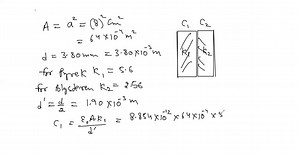 A = a² = (8)² cm²
= 64×10⁻⁴ m²
d = 3.80 mm = 3.80×10⁻³ m
for Pyrex K₁ = 5.6
for Polystyren K₂ = 2.56
d' = d/2 = 1.90×10⁻³ m
C₁ = ε₀AK₁/d' = 8.854×10⁻¹²×64×10⁻⁴×5
C₁ C₂
K₁ K₂